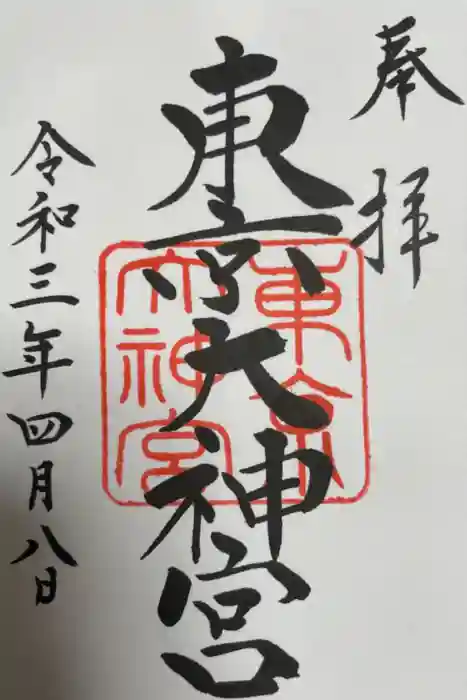 奉拝
東京大神宮
東京
大神宮
令和三年四月八日